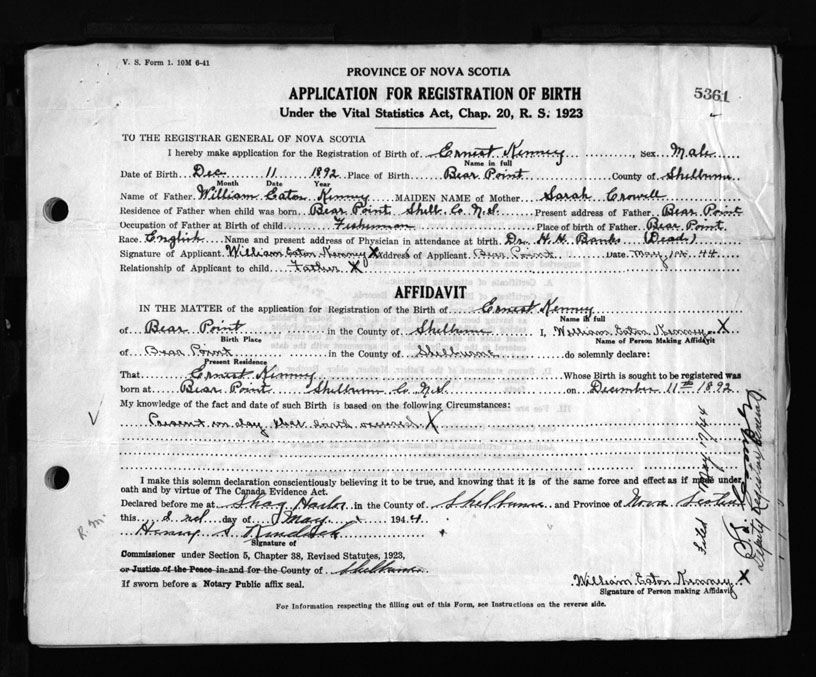 V. S. Form 1. 10M 6-41
PROVINCE OF NOVA SCOTIA
APPLICATION FOR REGISTRATION OF BIRTH
5361
Under the Vital Statistics Act, Chap. 20, R. S. 1923
TO THE REGISTRAR GENERAL OF NOVA SCOTIA
I hereby make application for the Registration of Birth of Ernest Kenney, Sex Male
Name in full
Date of Birth Dec. 11 1892 Place of Birth Bear Point County of Shelburne
Month Date Year
Name of Father William Eaton Kenney MAIDEN NAME of Mother Sarah Crowell
Residence of Father when child was born Bear Point Shell. Co. N.S. Present address of Father Bear Point
Occupation of Father at Birth of child Fisherman Place of birth of Father Bear Point
Race English Name and present address of Physician in attendance at birth Dr. H. H. Banks (Dead)
Signature of Applicant William Eaton Kenney X Address of Applicant Bear Point Date May 1st 44
Relationship of Applicant to child Father X
AFFIDAVIT
IN THE MATTER of the application for Registration of the Birth of Ernest Kenney
Name in full
of Bear Point in the County of Shelburne I, William Eaton Kenney X
Birth Place Name of Person Making Affidavit
of Bear Point in the County of Shelburne do solemnly declare:
Present Residence
That Ernest Kenney Whose Birth is sought to be registered was
born at Bear Point Shelburne Co. N.S. on December 11th 1892
My knowledge of the fact and date of such Birth is based on the following Circumstances:
Present on day that birth occurred X
I make this solemn declaration conscientiously believing it to be true, and knowing that it is of the same force and effect as if made under
oath and by virtue of The Canada Evidence Act.
Declared before me at Shag Harbor in the County of Shelburne and Province of Nova Scotia
this 2nd day of May 1944
Henry S.
Signature of
Commissioner under Section 5, Chapter 38, Revised Statutes, 1923,
or Justice of the Peace in and for the County of Shelburne
If sworn before a Notary Public affix seal.
William Eaton Kenney X
Signature of Person making Affidavit
For Information respecting the filling out of this Form, see Instructions on the reverse side.
Filed May 17/44
Deputy Registrar General